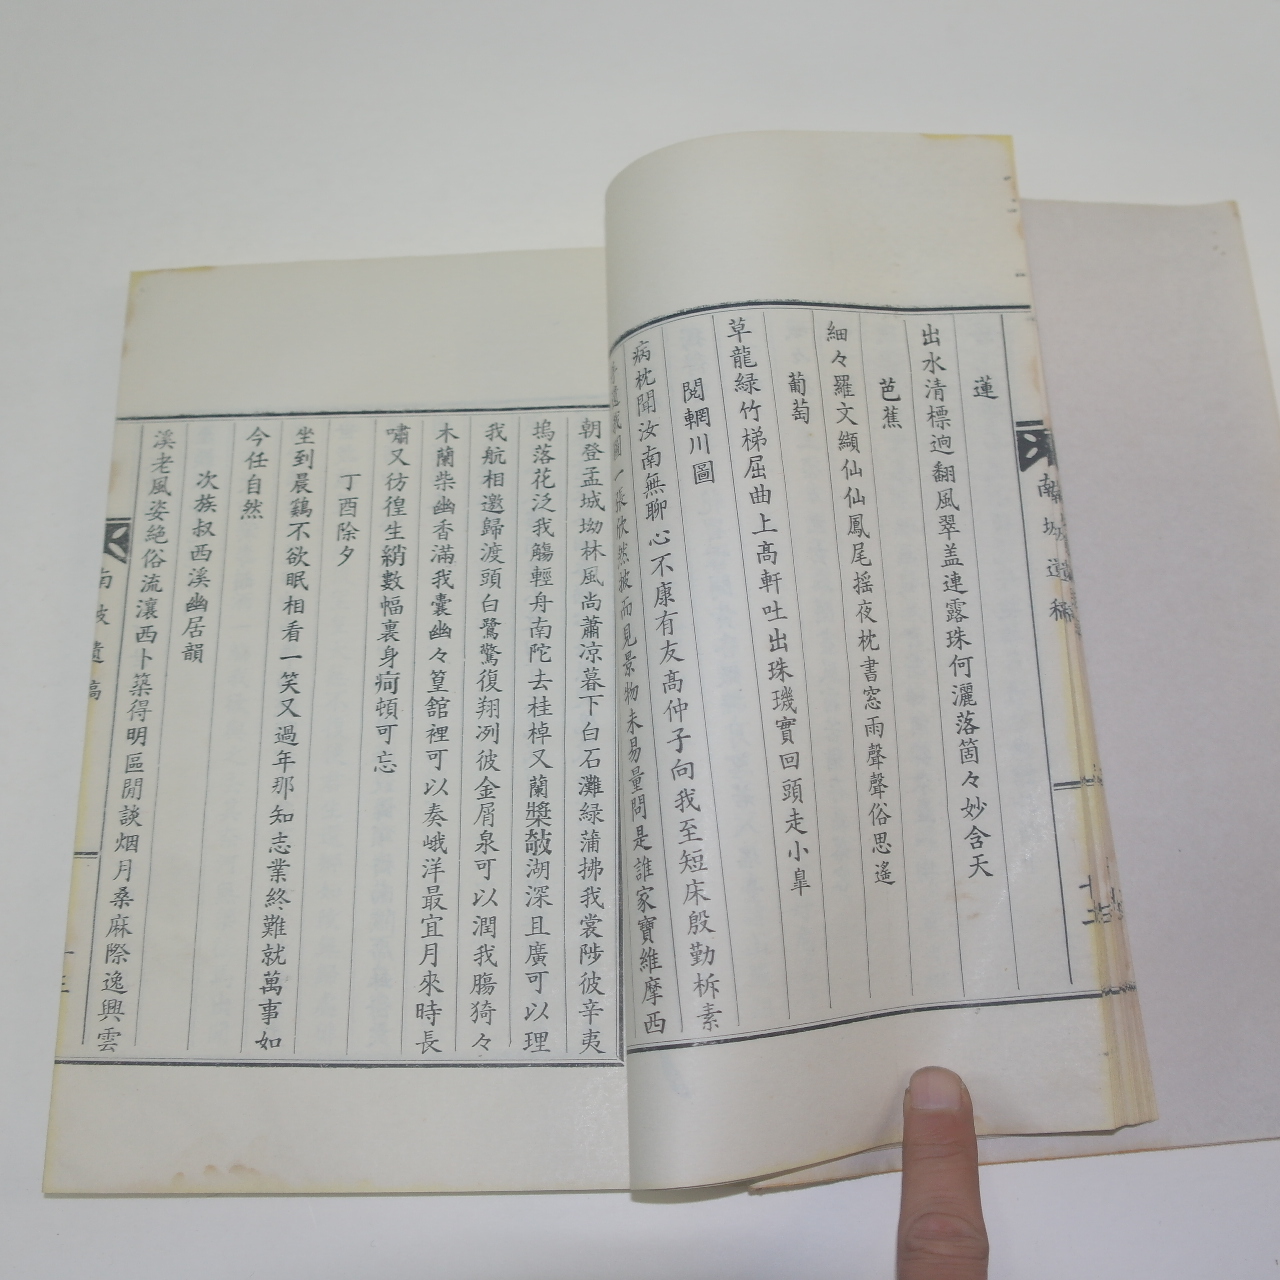 南坡遺稿
十二
蓮
出水清標逈翻風翠盖連露珠何灑落箇々妙含天
芭蕉
細々羅文纈仙仙鳳尾摇夜枕書窓雨聲聲俗思遙
葡萄
草龍緑竹梯屈曲上髙軒吐出珠璣實回頭走小臯
閲輞川圖
病枕聞汝南無聊心不康有友髙仲子向我至短床殷勤柝素
一張欣然披而見景物未易量問是誰家寶維摩西
朝登孟城坳林風尚蕭凉暮下白石灘緑蒲拂我裳陟彼辛夷
塢落花泛我觴輕舟南陀去桂棹又蘭槳敧湖深且廣可以理
我航相邀歸渡頭白鷺驚復翔冽彼金屑泉可以潤我膓猗々
木蘭柴幽香滿我囊幽々篁舘裡可以奏峨洋最宜月來時長
嘯又彷徨生綃數幅裏身痾頓可忘
丁酉除夕
坐到晨鷄不欲眠相看一笑又過年那知志業終難就萬事如
今任自然
次族叔西溪幽居韻
溪老風姿絶俗流瀼西卜築得明區閒談烟月桑麻際逸興雲
南坡遺稿
十三